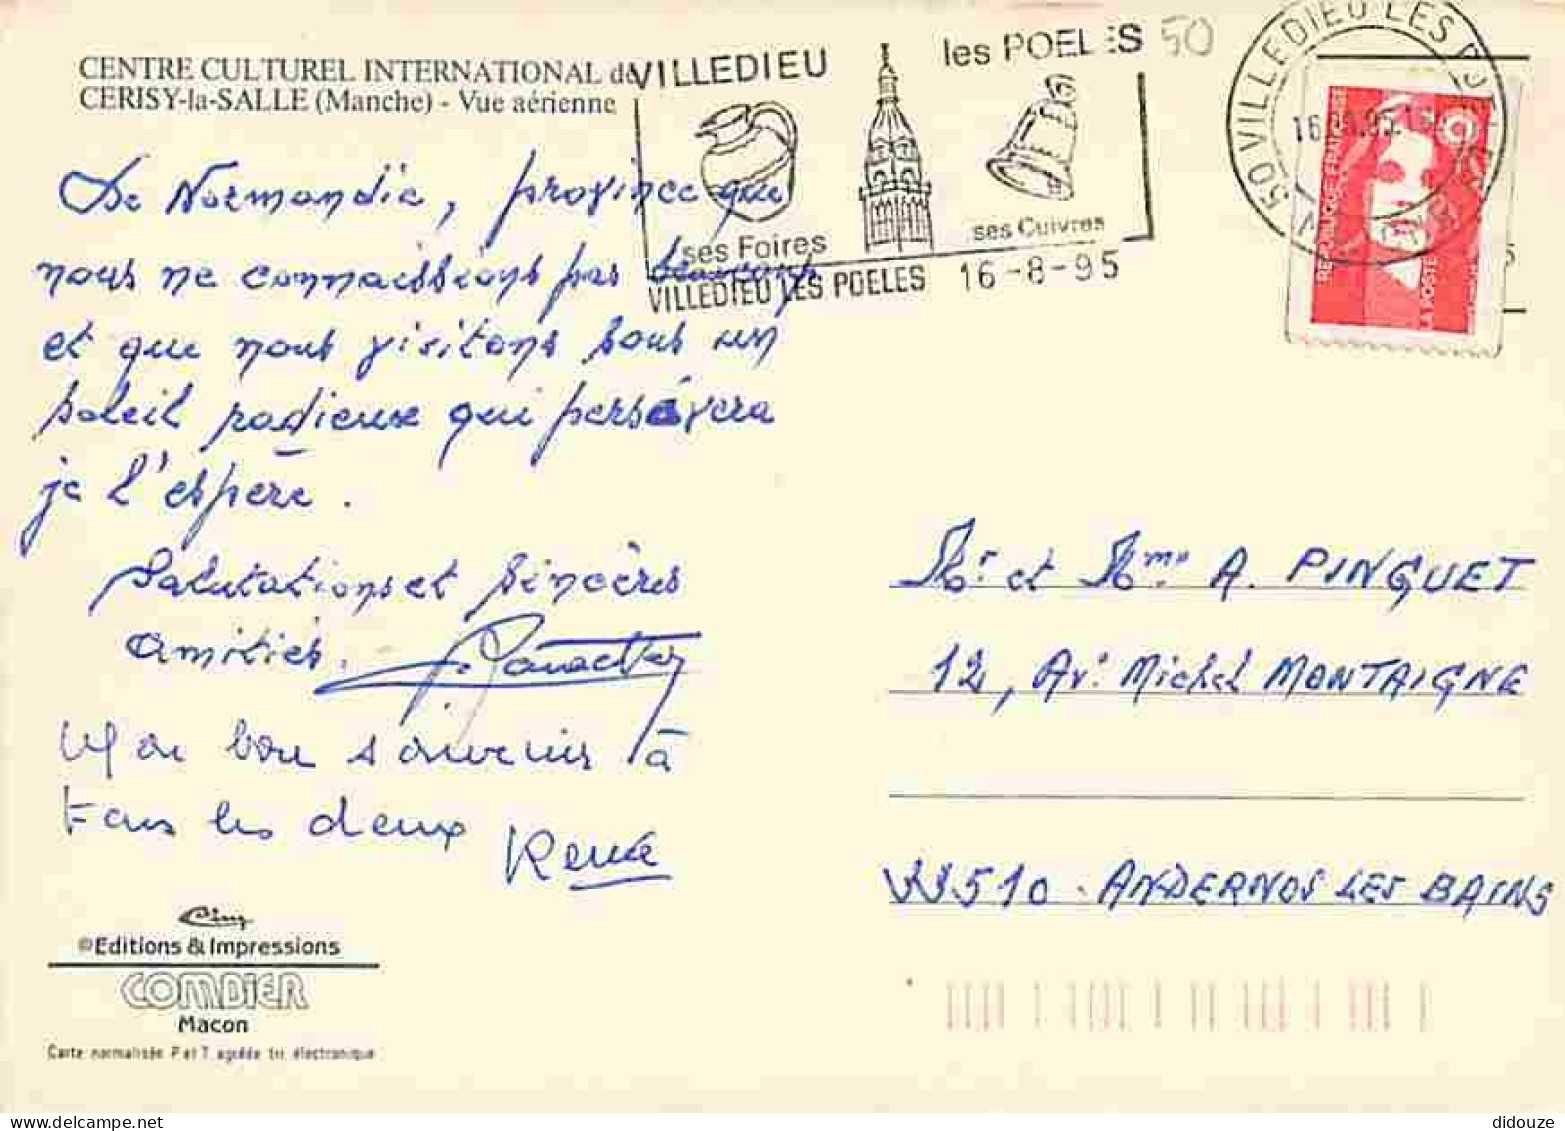 CENTRE CULTUREL INTERNATIONAL de
CERISY-la-SALLE (Manche) - Vue aérienne
VILLEDIEU les POELES
ses Foires ses Cuivres
VILLEDIEU LES POELES 16-8-95
50
50 VILLEDIEU LES POELES
REPUBLIQUE FRANÇAISE
LA POSTE
De Normandie, province que
nous ne connaissions pas beaucoup
et que nous visitons sous un
soleil radieux qui persévera
je l'espère.
Salutations et sincères
amitiés.
Mon bon souvenir à
tous les deux
Renée
Mr et Mme A. PINGUET
12, Av. Michel MONTAIGNE
33510 - ANDERNOS LES BAINS
Cim
©Editions & Impressions
COMBIER
Macon
Carte normalisée P et T agréée tri électronique
didouze